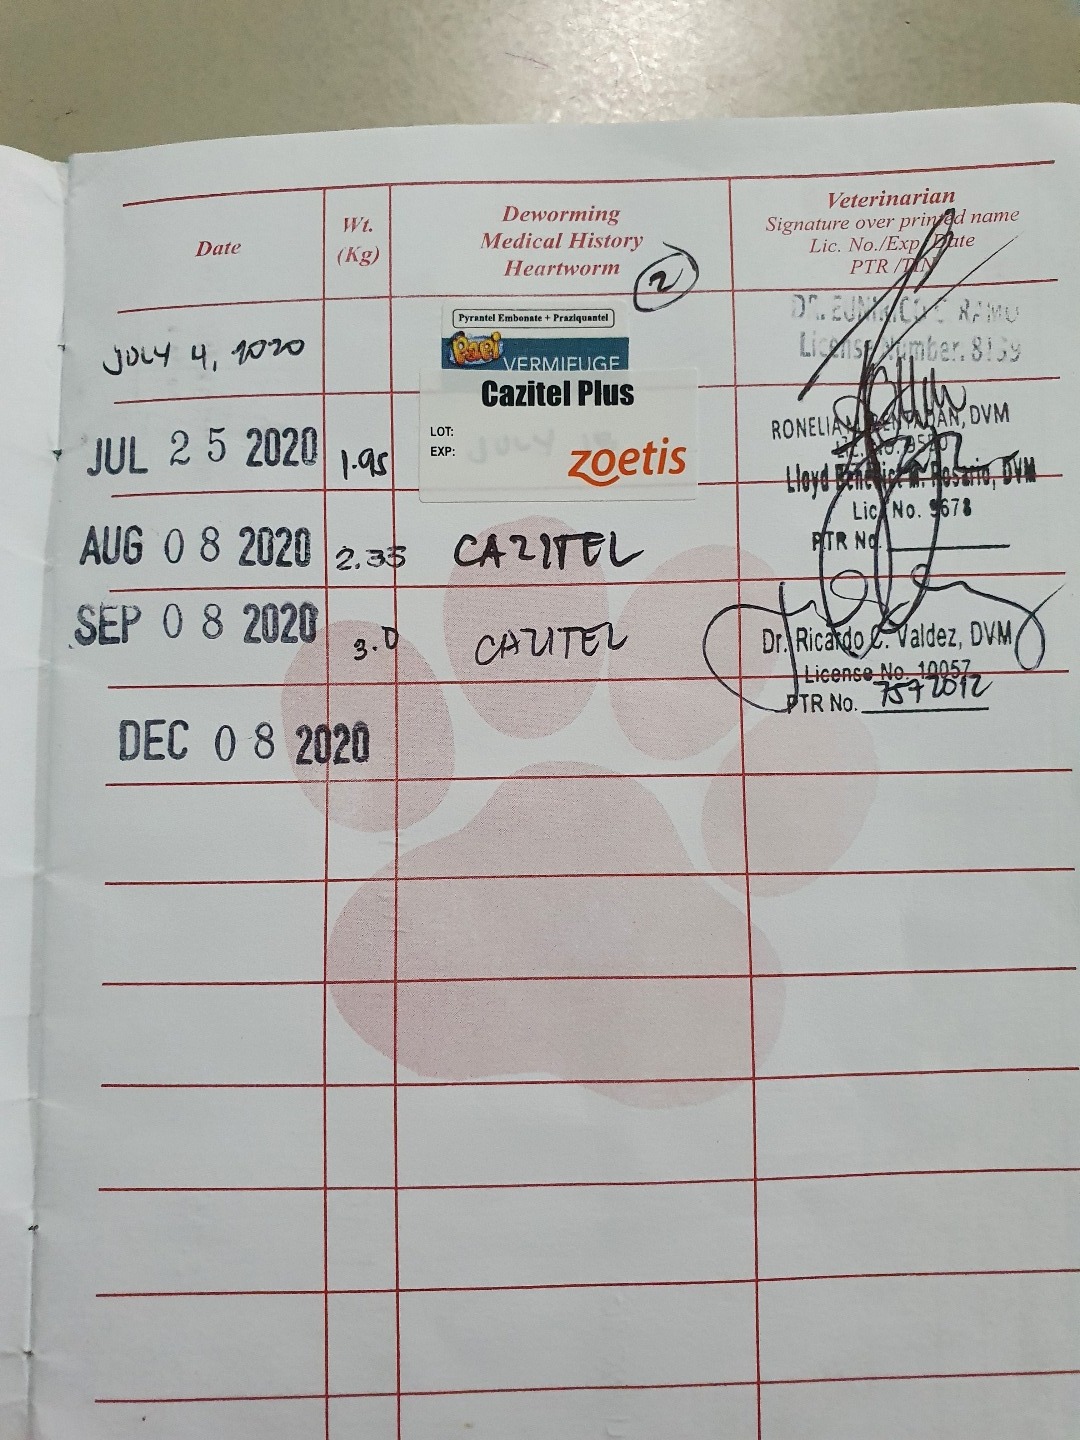 Date
Wt.
(Kg)
Deworming
Medical History
Heartworm
2
Veterinarian
Signature over printed name
Lic. No./Exp. Date
PTR /TIN
JULY 4, 2020
Pyrantel Embonate + Praziquantel
Papi VERMIFUGE
DR. C RAMO
License Number. 8139
JUL 25 2020
1.95
Cazitel Plus
LOT:
EXP:
zoetis
DVM
Lloyd Benedict M. Rosario, DVM
Lic. No. 9678
PTR No.
AUG 08 2020
2.35
CAZITEL
SEP 08 2020
3.0
CAZITEL
Dr. Ricardo C. Valdez, DVM
License No. 10057
PTR No. 7572012
DEC 08 2020